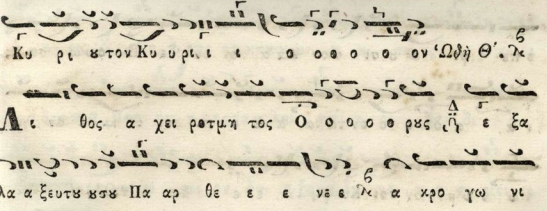 Κυ ρι ȣτον Κυ υρι ι ι ο οο ο ο ο ον Ὠδὴ Θ΄.
Λι θος α χει ροτμη τος Ὀ ο ο ο ο ρȣς ε ξα
λα α ξευτȣ ȣσȣ Πα αρ θε ε ε νε ε α κρο γω νι